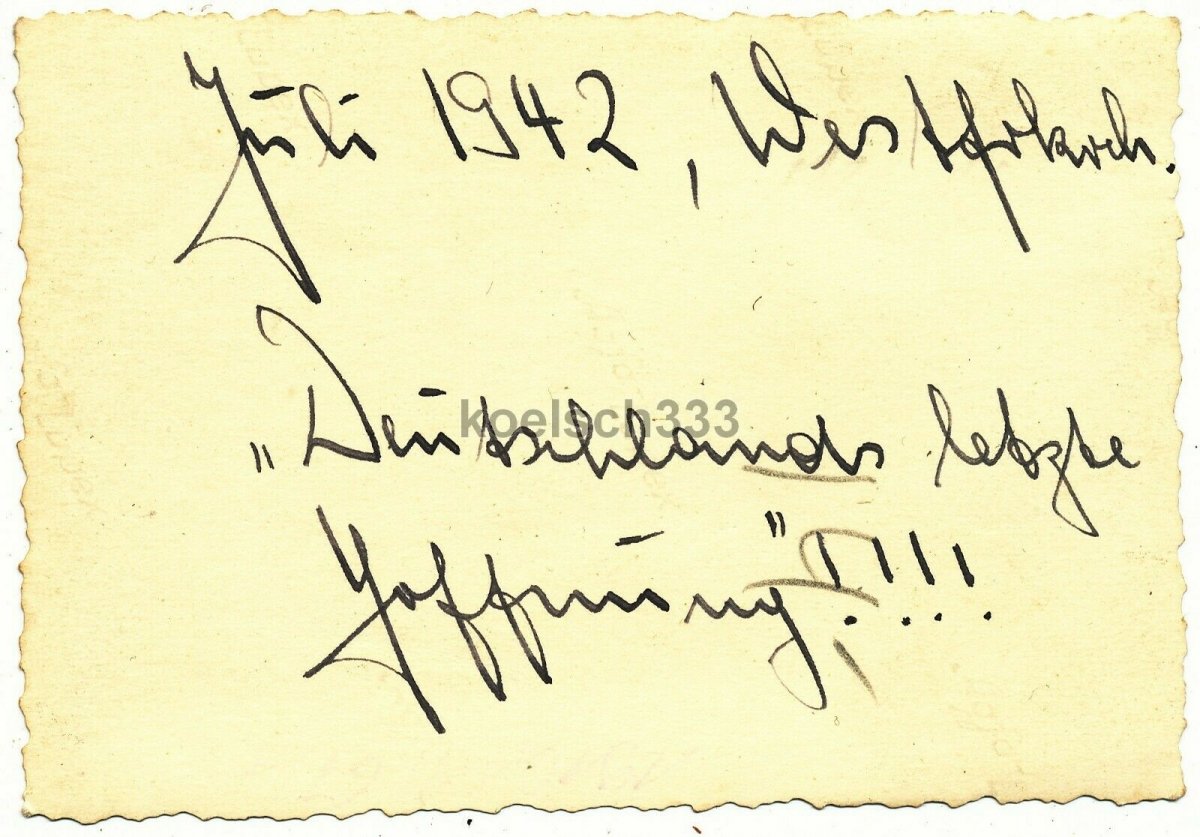 Juli 1942, Westfrkrch.
„Deutschlands letzte
Hoffnung"!!!!
koelsch333